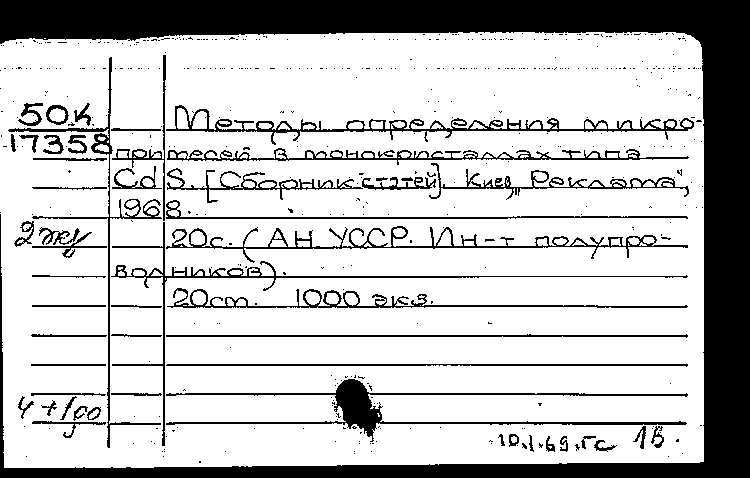 50К
17358
Методы определения микро-
примесей в монокристаллах типа
CdS. [Сборник статей]. Киев, „Реклама",
1968.
2 экз
20с. (АН УССР. Ин-т полупро-
водников).
20см. 1000 экз.
10.1.69.
1В.